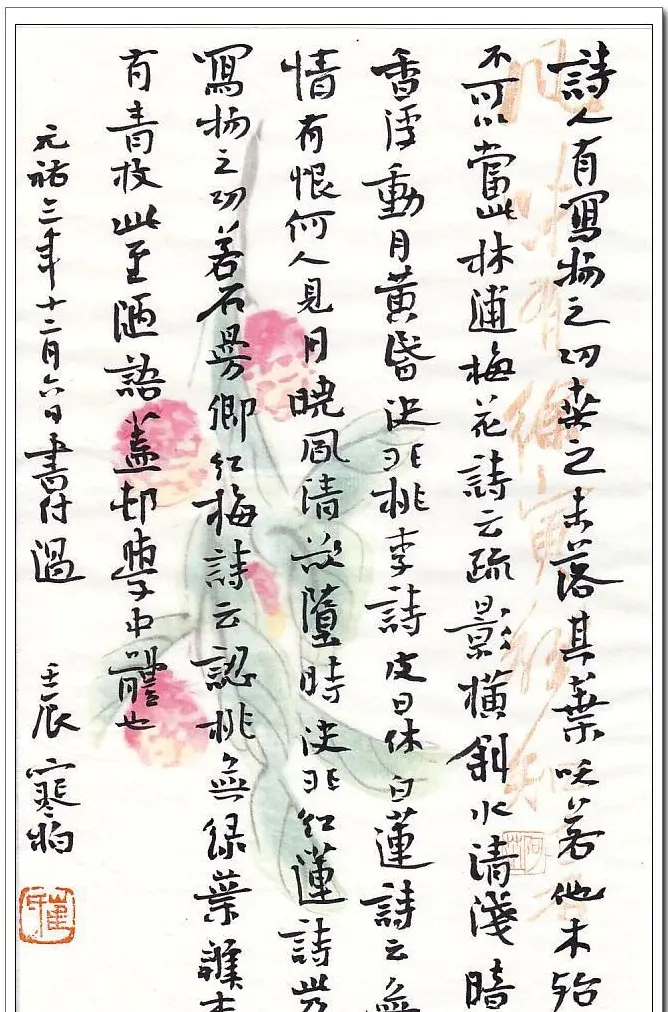 詩人有寫物之功桒之未落其葉沃若他木殆
不可以當此林逋梅花詩云疏影橫斜水清淺暗
香浮動月黃昏決非桃李詩皮日休白蓮詩云無
情有恨何人見月曉風清欲墮時決非紅蓮詩此乃
寫物之功若石曼卿紅梅詩云認桃無綠葉杏
有青枝此至陋語蓋村學中體也
元祐三年十二月六日書付過
壬辰 寒